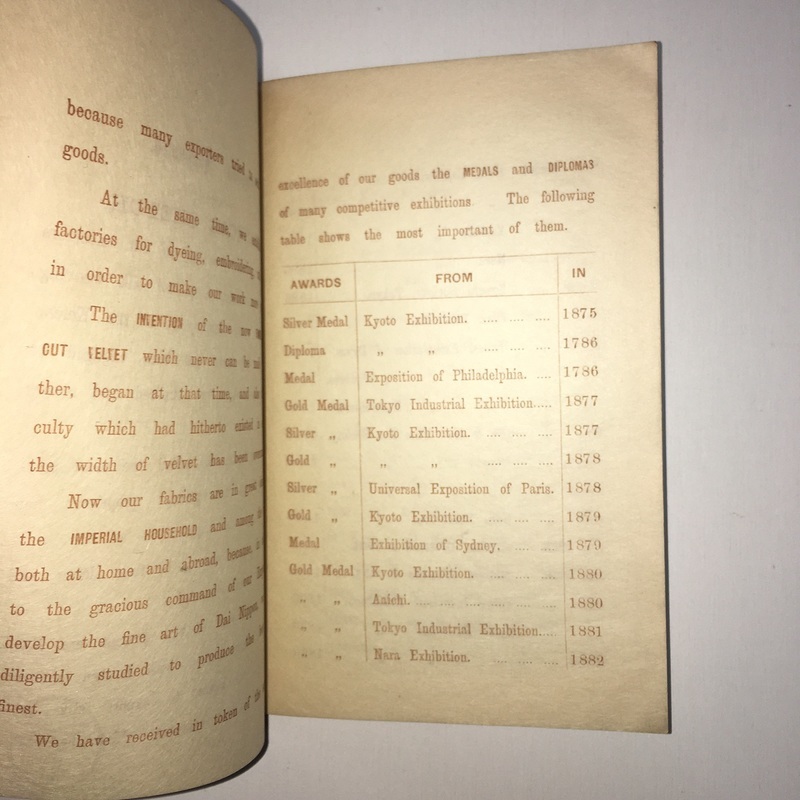 because many exporters tried
goods.
At the same time, we
factories for dyeing, embroidering,
in order to make our work
The INTENTION of the new
CUT VELVET which never can be
ther, began at that time, and
culty which had hitherto existed
the width of velvet has been
Now our fabrics are in great
the IMPERIAL HOUSEHOLD and among
both at home and abroad, because,
to the gracious command of our
develop the fine art of Dai Nippon,
diligently studied to produce the
finest.
We have received in token of the
excellence of our goods the MEDALS and DIPLOMAS
of many competitive exhibitions. The following
table shows the most important of them.
AWARDS FROM IN
Silver Medal Kyoto Exhibition. .... .... .... 1875
Diploma „ „ .... .... .... 1786
Medal Exposition of Philadelphia. .... 1786
Gold Medal Tokyo Industrial Exhibition..... 1877
Silver „ Kyoto Exhibition. .... .... .... 1877
Gold „ „ „ .... .... .... 1878
Silver „ Universal Exposition of Paris. 1878
Gold „ Kyoto Exhibition. .... .... .... 1879
Medal Exhibition of Sydney. .... .... 1879
Gold Medal Kyoto Exhibition. .... .... .... 1880
„ „ Aaichi. .... .... .... .... .... 1880
„ „ Tokyo Industrial Exhibition.... 1881
„ „ Nara Exhibition. .... .... .... 1882